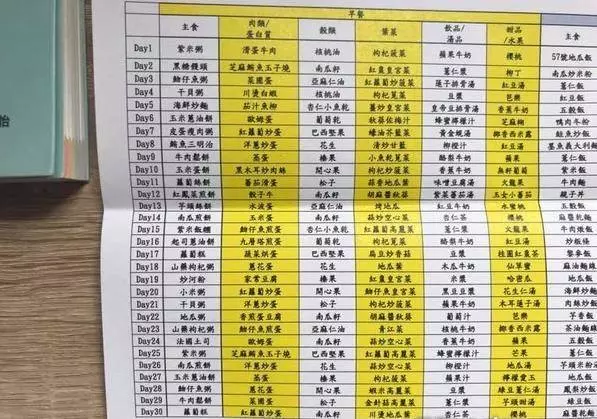 早餐
主食 肉類/蛋白質 穀類 葉菜 飲品/湯品 甜品/水果 主食
Day1 紫米粥 滑蛋牛肉 核桃油 枸杞菠菜 蘋果牛奶 櫻桃 57號地瓜飯
Day2 黑糖饅頭 芝麻鮪魚玉子燒 南瓜籽 紅棗皇宮菜 薏仁漿 柳丁 南瓜炒米粉
Day3 魩仔魚粥 菜圃蛋 亞麻仁油 紅蘿蔔炒菠菜 蓮子排骨湯 紅豆湯 薏仁飯
Day4 干貝粥 川燙白蝦 核桃油 枸杞莧菜 豆漿 芭樂 紅豆飯
Day5 海鮮炒麵 茄汁魚柳 杏仁小魚乾 薑炒皇宮菜 皇帝豆排骨湯 香蕉牛奶 五穀飯
Day6 玉米蔥油餅 歐姆蛋 葡萄乾 秋葵佐梅汁 蜂蜜檸檬汁 芝麻糊 鴨肉冬粉
Day7 皮蛋瘦肉粥 紅蘿蔔炒蛋 巴西堅果 蠔油芥藍菜 黃金蜆湯 椰香西米露 鮭魚炒飯
Day8 鮪魚三明治 洋蔥炒蛋 花生 清炒甘藍 柳橙汁 紅豆湯 墨魚義大利麵
Day9 牛肉鬆餅 蒸蛋 榛果 小魚乾莧菜 酪梨牛奶 蘋果 五穀飯
Day10 玉米蛋餅 黑木耳炒肉絲 開心果 枸杞炒菠菜 香蕉牛奶 無籽葡萄 紫米飯
Day11 蘿蔔絲餅 蕃茄滑蛋 松子 紅蘿蔔高麗菜 味噌豆腐湯 火龍果 牛肉麵
Day12 紅鳳菜煎餅 骰子牛 南瓜籽 胡麻醬秋葵 蕃茄汁 玉女小蕃茄 親子丼
Day13 芋頭絲餅 水波蛋 亞麻仁油 烤地瓜 紅豆牛奶 水蜜桃 薏仁飯
Day14 南瓜煎餅 玉米蛋 南瓜籽 蒜炒空心菜 杏仁茶 櫻桃 麻醬乾麵
Day15 紫米飯糰 魩仔魚煎蛋 杏仁小魚乾 紅蘿蔔炒菠菜 薏仁漿 火龍果 牛肉燉飯
Day16 起司蔥油餅 九層塔煎蛋 葡萄乾 枸杞莧菜 酪梨牛奶 紅豆湯 炒板條
Day17 蘿蔔糕 蔬菜烘蛋 巴西堅果 扁豆炒香菇 豆漿 桂圓紅棗茶 藜麥飯
Day18 山藥枸杞粥 蔥花蛋 花生 地瓜葉 木瓜牛奶 仙草蜜 麻油麵線
Day19 炒河粉 家常豆腐 榛果 蒜炒空心菜 米漿 哈密瓜 地瓜飯
Day20 小米粥 紅蘿蔔炒蛋 開心果 魩仔魚皇宮菜 黑豆漿 花生仁湯 魩仔魚炒飯
Day21 干貝粥 洋蔥炒蛋 松子 枸杞炒菠菜 蘋果牛奶 木耳蓮子湯 肉絲炒飯
Day22 地瓜粥 香煎蛋豆腐 南瓜籽 胡麻醬秋葵 葡萄汁 芭樂 芋香飯
Day23 山藥枸杞粥 魩仔魚煎蛋 亞麻仁油 青江菜 核桃牛奶 椰香西米露 茶油麵線
Day24 法國土司 歐姆蛋 南瓜籽 蒜炒空心菜 香蕉牛奶 蘋果 薏仁飯
Day25 紫米粥 芝麻鮪魚玉子燒 巴西堅果 紅蘿蔔高麗菜 蜂蜜檸檬汁 芒果 薏仁飯
Day26 南瓜煎餅 洋蔥炒蛋 松子 枸杞菠菜 柳橙汁 地瓜湯 芋頭米粉
Day27 玉米蔥油餅 蒸蛋 榛果 地瓜葉 蘋果汁 檸檬愛玉 地瓜飯
Day28 魩仔魚粥 蔥花蛋 開心果 蝦米高麗菜 豆漿 綠豆薏仁湯 鳳梨炒飯
Day29 牛肉鬆餅 菜圃蛋 松子 金針菇高麗菜 薏仁漿 芋頭甜湯 綠豆飯
Day30 蘿蔔糕 紅蘿蔔炒蛋 南瓜籽 川燙地瓜葉 杏仁茶 五穀飯